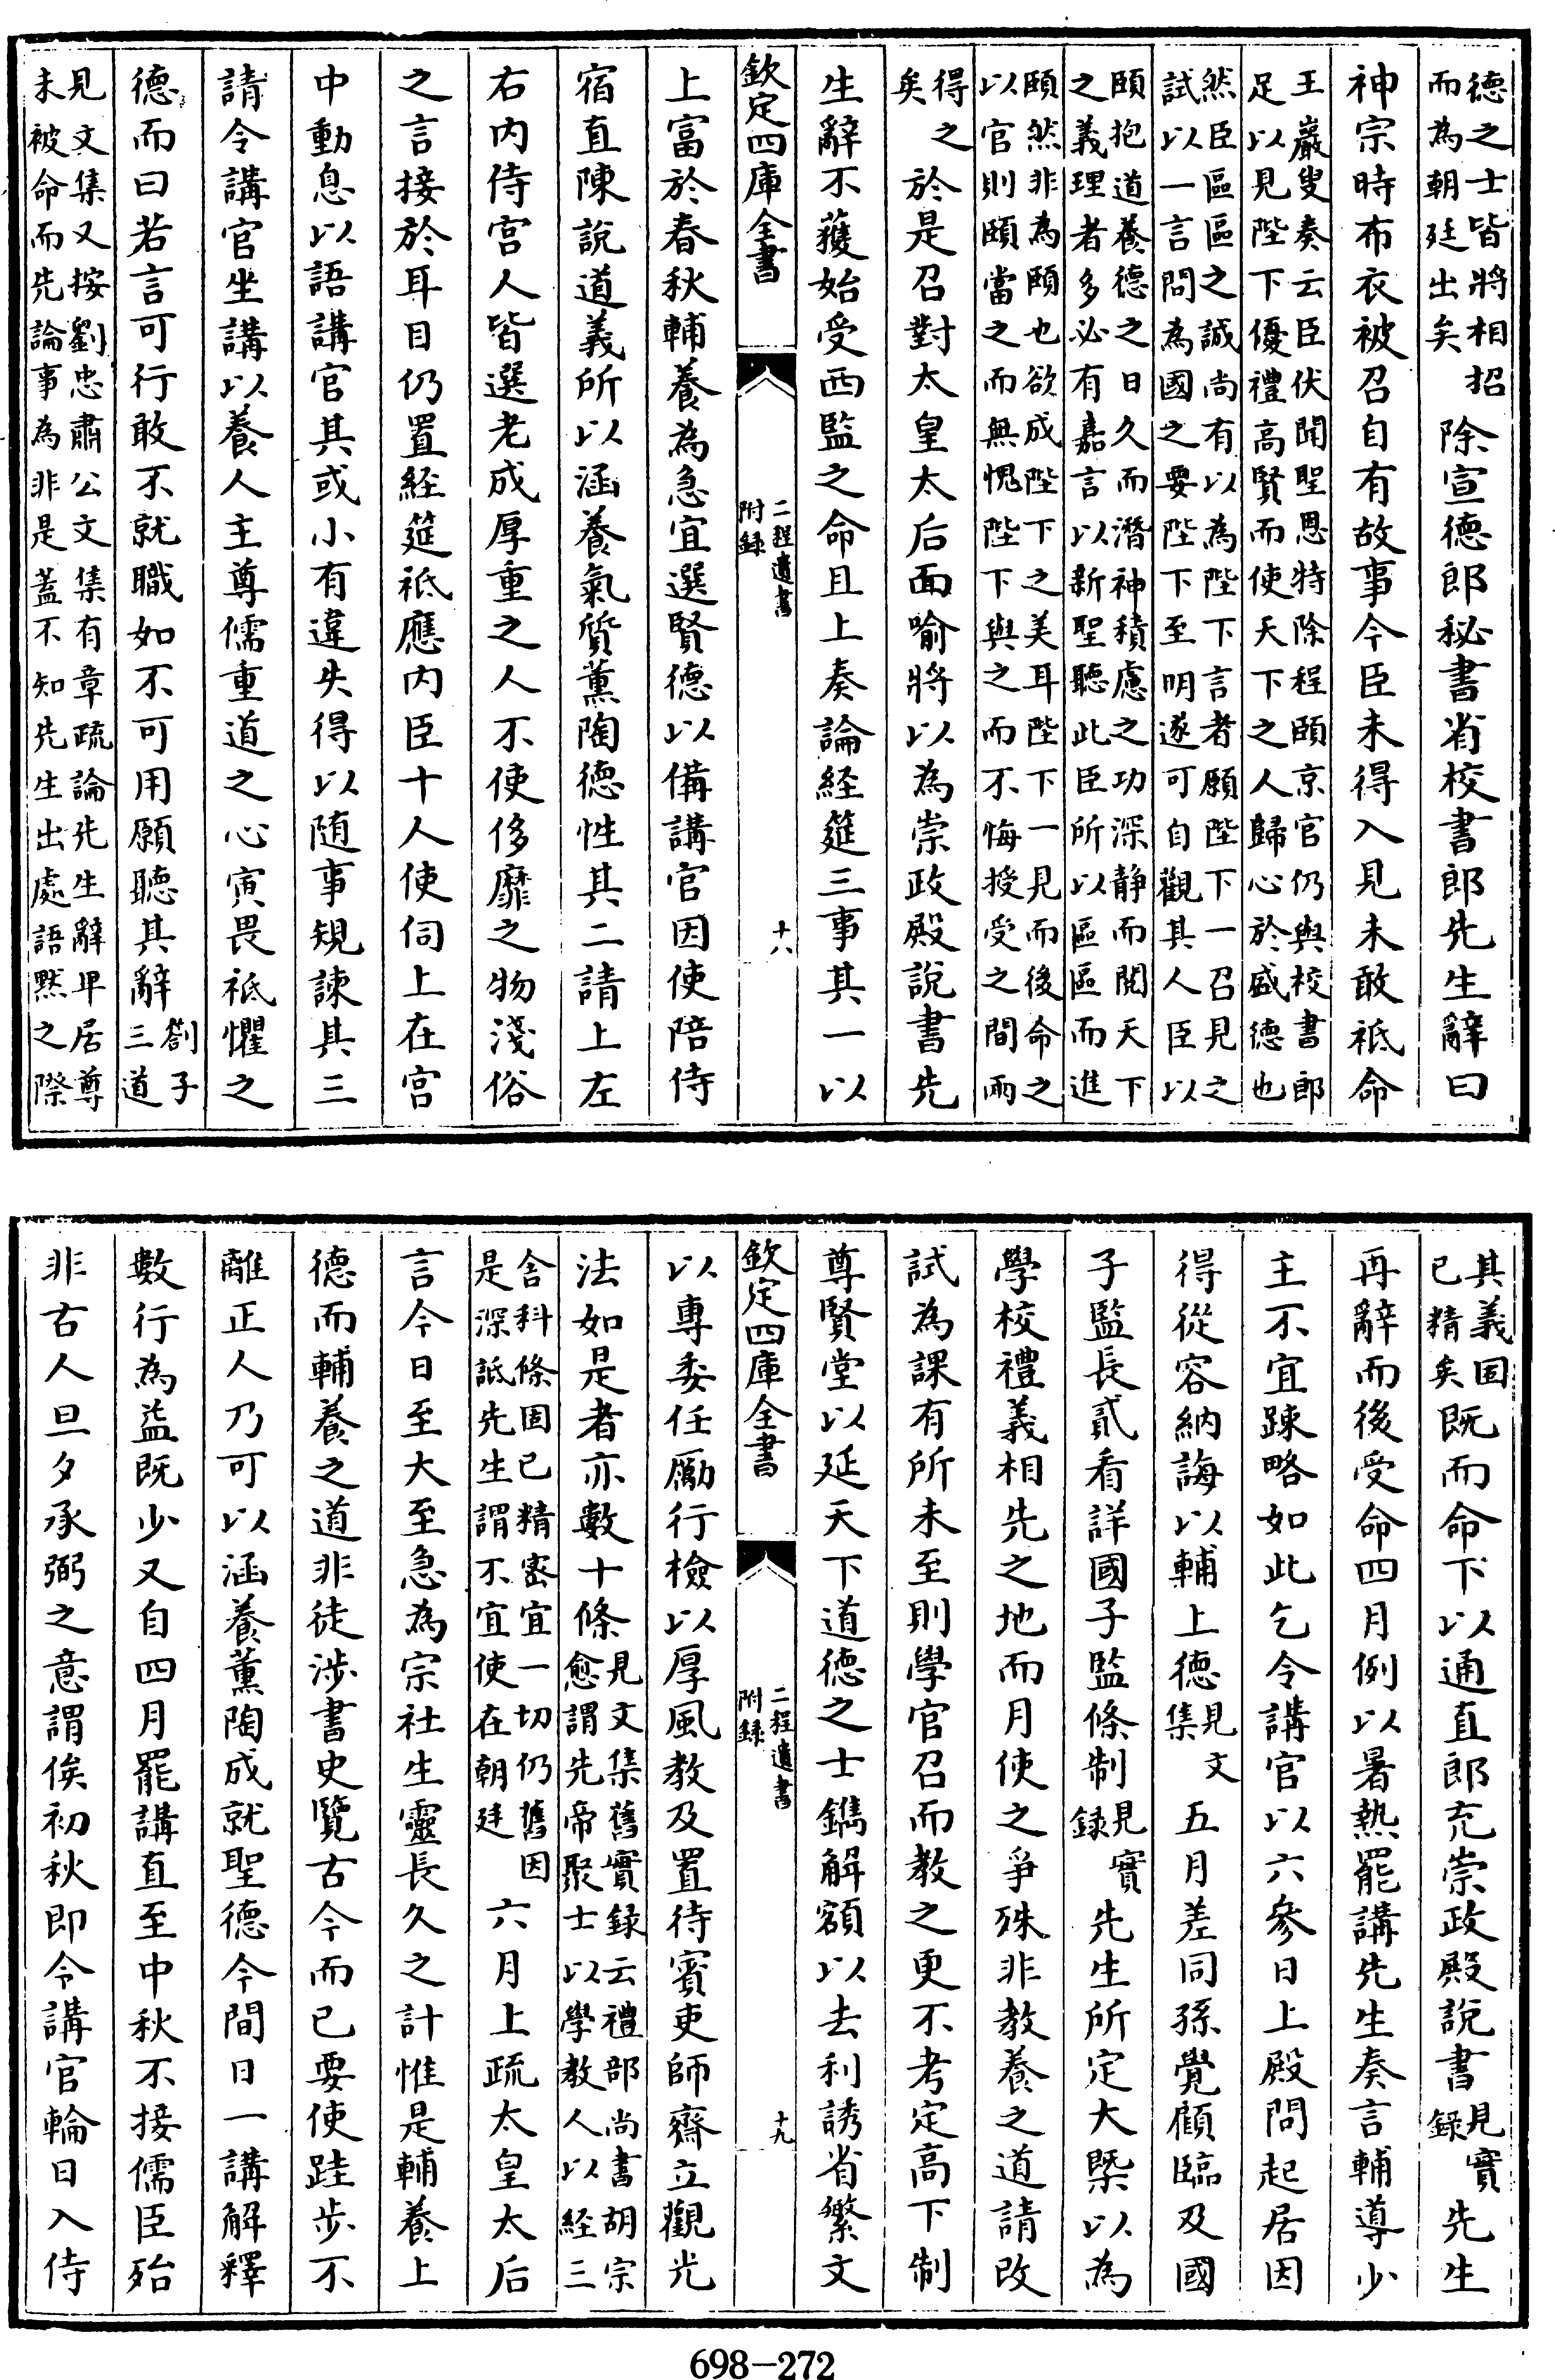 德之士皆將相招而為朝廷出矣除宣德郎秘書省校書郎先生辭曰
神宗時布衣被召自有故事今臣未得入見未敢祇命
王巖叟奏云臣伏聞聖恩特除程頤京官仍與校書郎足以見陛下優禮高賢而使天下之人歸心於盛德也
然臣區區之誠尚有以為陛下言者願陛下一召見之試以一言問為國之要陛下至明遂可自觀其人臣以
頤抱道養德之日久而潛神積慮之功深静而閱天下之義理者多必有嘉言以新聖聽此臣所以區區而進
頤然非為頤也欲成陛下之美耳陛下一見而後命之以官則頤當之而無愧陛下與之而不悔授受之間兩
得之矣於是召對太皇太后面喻將以為崇政殿說書先
生辭不獲始受西監之命且上奏論経筵三事其一以
欽定四庫全書
二程遺書附録
十八
上富於春秋輔養為急宜選賢德以備講官因使陪侍
宿直陳說道義所以涵養氣質薫陶德性其二請上左
右内侍宫人皆選老成厚重之人不使侈靡之物淺俗
之言接於耳目仍置経筵祇應内臣十人使伺上在宫
中動息以語講官其或小有違失得以随事規諫其三
請令講官坐講以養人主尊儒重道之心寅畏祇懼之
德而曰若言可行敢不就職如不可用願聽其辭劄子三道
見文集又按劉忠肅公文集有章疏論先生辭卑居尊未被命而先論事為非是蓋不知先生出處語黙之際
其義固已精矣既而命下以通直郎充崇政殿說書見實録先生
再辭而後受命四月例以暑熱罷講先生奏言輔導少
主不宜踈略如此乞令講官以六參日上殿問起居因
得從容納誨以輔上德見文集五月差同孫覺顧臨及國
子監長貳看詳國子監條制見實録先生所定大槩以為
學校禮義相先之地而月使之爭殊非教養之道請改
試為課有所未至則學官召而教之更不考定高下制
尊賢堂以延天下道德之士鐫解額以去利誘省繁文
欽定四庫全書
二程遺書附録
十九
以專委任勵行檢以厚風教及置待賓吏師齋立觀光
法如是者亦數十條見文集舊實録云禮部尚書胡宗愈謂先帝聚士以學教人以経三
舍科條固已精密宜一切仍舊因是深詆先生謂不宜使在朝廷六月上疏太皇太后
言今日至大至急為宗社生靈長久之計惟是輔養上
德而輔養之道非徒渉書史覽古今而已要使跬步不
離正人乃可以涵養薫陶成就聖德今間日一講解釋
數行為益既少又自四月罷講直至中秋不接儒臣殆
非古人旦夕承弼之意謂俟初秋即令講官輪日入侍
698-272